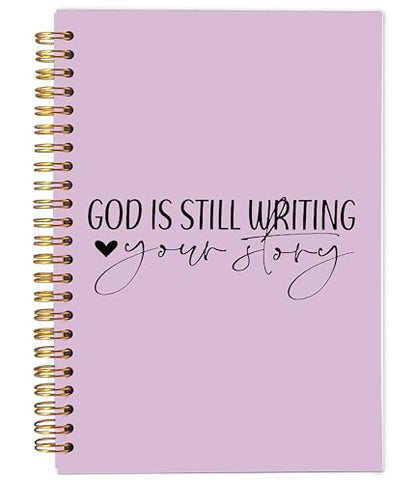 GOD IS STILL WRITING
your story